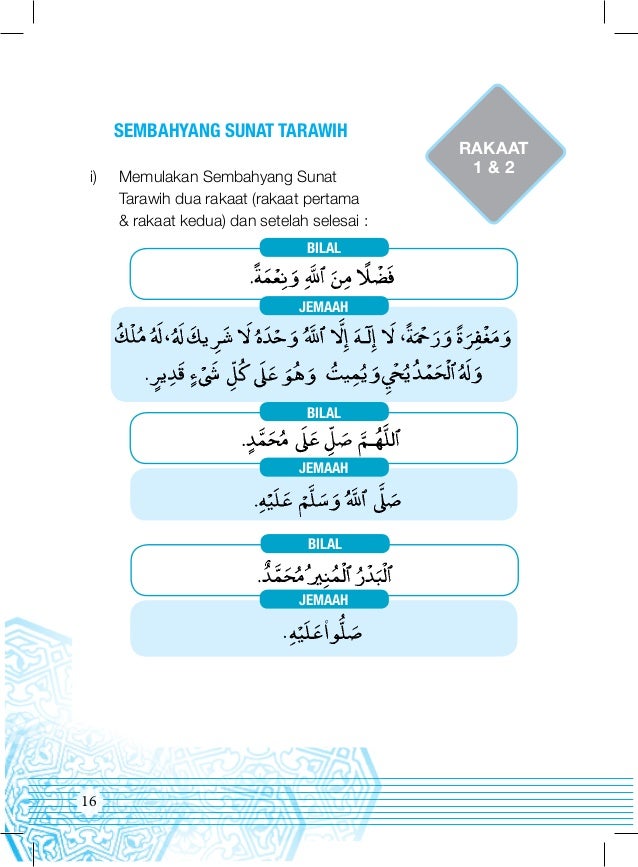 SEMBAHYANG SUNAT TARAWIH
RAKAAT
1 & 2
i) Memulakan Sembahyang Sunat
Tarawih dua rakaat (rakaat pertama
& rakaat kedua) dan setelah selesai :
BILAL
فَضْلًا مِنَ ٱللَّهِ وَنِعْمَةً.
JEMAAH
وَمَغْفِرَةً وَرَحْمَةً، لَا إِلَـٰهَ إِلَّا ٱللَّهُ وَحْدَهُ لَا شَرِيكَ لَهُ، لَهُ مُلْكُ
وَلَهُ ٱلْحَمْدُ يُحْيِي وَيُمِيتُ وَهُوَ عَلَى كُلِّ شَىْءٍ قَدِيرٌ.
BILAL
ٱللَّهُـمَّ صَلِّ عَلَى مُحَمَّدٍ.
JEMAAH
صَلَّى ٱللَّهُ وَسَلَّمْ عَلَيْهِ.
BILAL
ٱلْبَدْرُ ٱلْمُنِيرُ مُحَمَّدٌ.
JEMAAH
صَلُّوا۟ عَلَيْهِ.
16